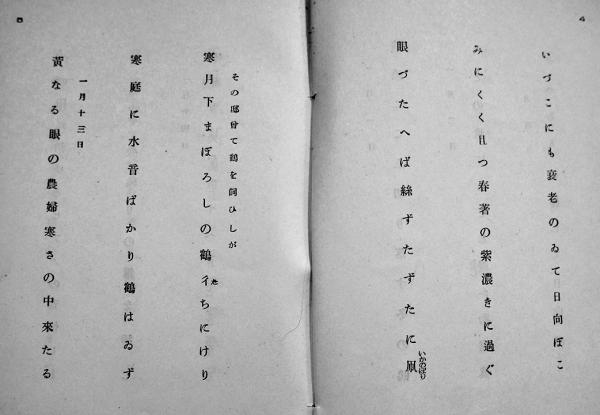 4
いづこにも衰老のゐて日向ぼこ
みにくく且つ春著の紫濃きに過ぐ
眼づたへば絲ずたずたに凧
いかのぼり
その邸曾て鶴を飼ひしが
寒月下まぼろしの鶴彳ちにけり
た
寒庭に水音ばかり鶴はゐず
一月十三日
黃なる眼の農婦寒さの中來たる
5